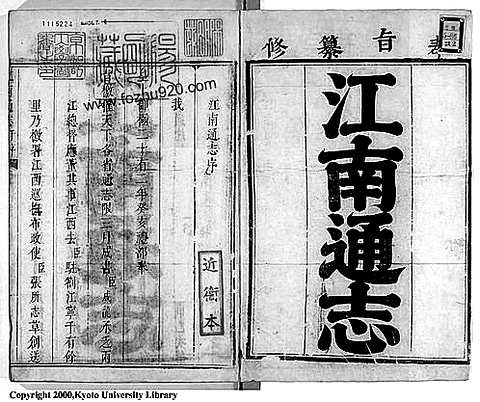 旨纂修
江南通志
江南通志序
近衛本
我
二十有二年癸亥禮部奉
檄天下各省通志限三月成書臣成龍亦
江總督應董其事江西去臣駐劄江寧千有餘
里乃檄署江西巡撫布政使臣張所志草創送
1115224
www.fozhu920.com
Copyright 2000,Kyoto University Library